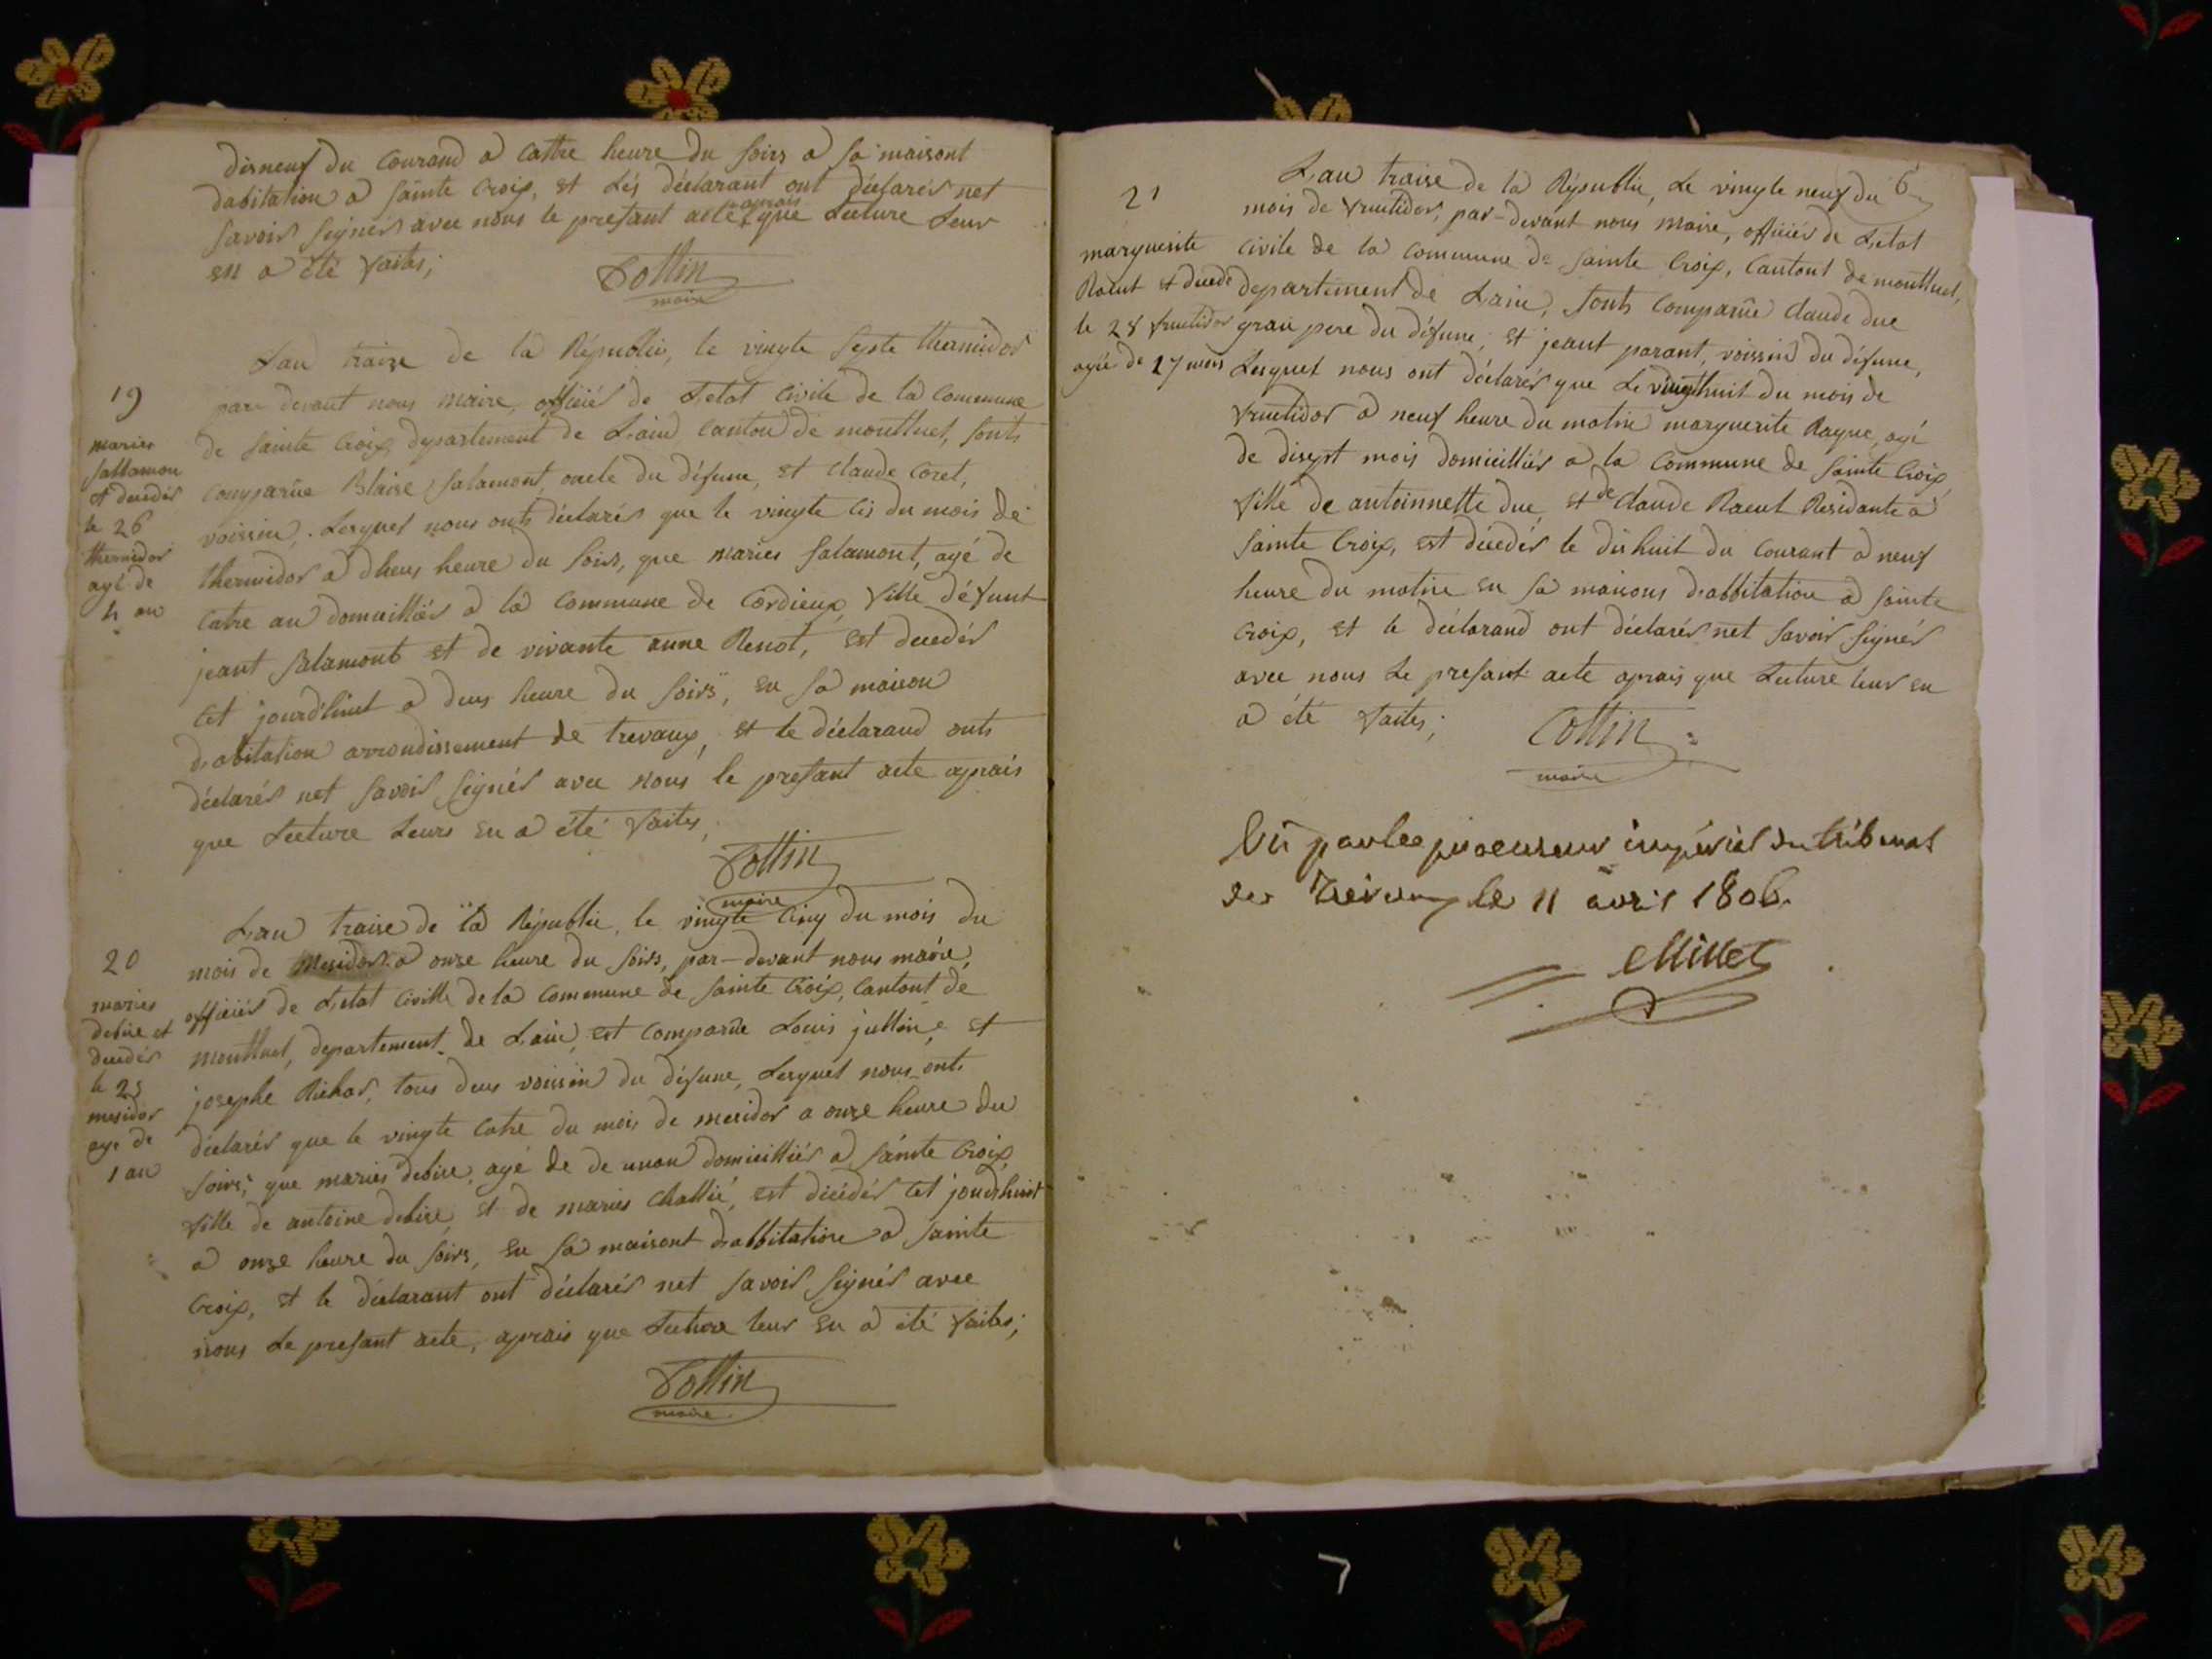 disneuf du Courand a Cattre heure du soirs a sa maisont
dabitation a sainte Croix, et Lés déclarant ont déclarés net
savoirs signiés avec nous le presant acte aprais que Lecture Leur
en a été faites;
Cottin
maire
19
maries
sallamon
et decedés
le 26
thermidor
agé de
4 an
Lan traize de la Républic, le vingte septe thermidor
par devant nous maire, officiés de Letat Civile de la Commune
de sainte Croix, departement de Lain canton de montluel, sonts
Comparûe Blaise Salamont, oncle du défune, et Claude Coret,
voissin, Lesquel nous onts déclarés que le vingte cis du mois de
thermidor a dheus heure du soirs, que maries Salamont, agé de
Catre an domicilliés a la Commune de Cordieux, fille défunt
jeant Salamont et de vivante anne Renot, est decedés
cet jourdhiuit a deus heure du soirs, en sa maison
dabitation arrondissement de trevaux, et le déclarand onts
déclarés net savoir signiés avec nous le presant acte aprais
que Lecture Leurs en a été faites,
Cottin
maire
20
maries
debise et
decedés
le 25
mesidor
age de
1 an
Lan traise de la Républic, le vingte cinq du mois du
mois de Mesidor a onze heure du soirs, par-devant nous maire,
officiés de Letat Civille de la Commune de sainte Croix, Cantont de
montluel, departement de Lain, est Comparûe Louis jullin, et
josephe Richar, tous deus voissin du défune, Lesquel nous onts
déclarés que le vingte Catre du mois de mesidor a onze heure du
soirs, que maries debise, agé de de unan domicilliés a sainte Croix,
fille de antoine debise, et de maries Challié, est décédés cet jourdhiuit
a onze heure du soirs, en sa maisont dabbitation a sainte
Croix, et le déclarant ont déclarés net savoir signiés avec
nous Le presant acte, aprais que Lecture leur en a été faites;
Cottin
maire
6
21
marguerite
Raeut et decede
le 28 fructidor
agée de 17 mois
Lan traise de la Républic, Le vingte neuf du
mois de fructidor, par-devant nous Maire, officiés de Létat
Civile de la Commune de sainte Croix, Cantont de montluel,
departement de Lain, sonts Comparûe Claude duc
gran pere du défune, et jeant parant, voissin du défune,
Lesquel nous ont déclarés que Le vingthuit du mois de
fructidor a neuf heure du matin marguerite Raque, agé
de disept mois domicilliés a la Commune de sainte Croix,
fille de antoinnette duc, et de Claude Raeut Residante a
sainte Croix, est décedés le dis huit du Courant a neuf
heure du matin en sa maisons dabbitation a sainte
Croix, et le déclarand ont déclarés net savoir signiés
avec nous Le presant acte aprais que Lecture leur en
a été faites;
Cottin
maire
Vû par le procureur impérial du tribunal
de Trevoux le 11 avril 1806.
Millet